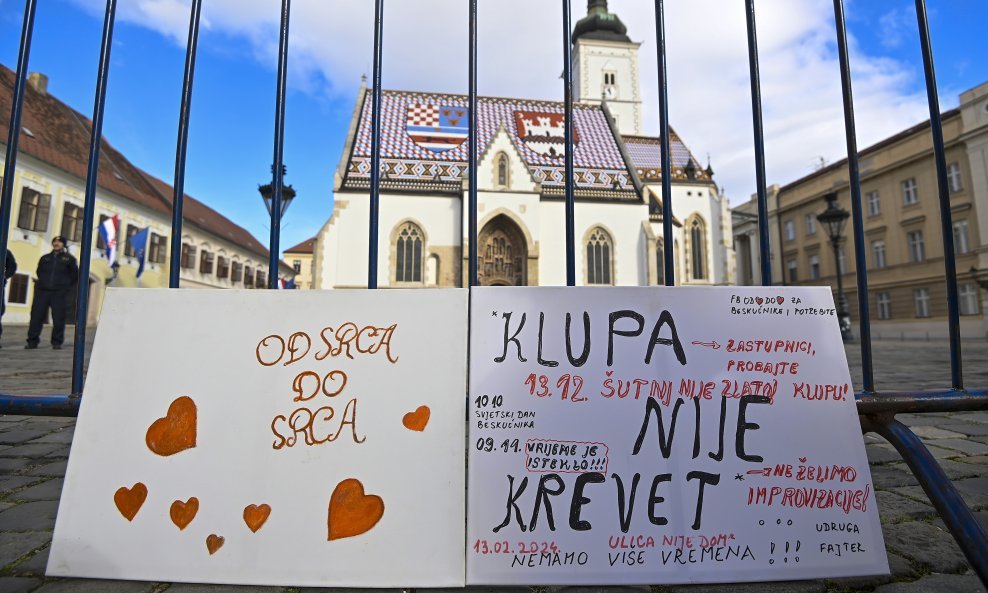 OD SRCA
DO
SRCA
FB OD DO ZA
BESKUĆNIKE I POTREBITE
*KLUPA
→ ZASTUPNICI,
PROBAJTE
13.12. ŠUTNJ NIJE ZLATNJ KLUPU!
10.10
SVJETSKI DAN
BESKUĆNIKA
NIJE
09.11. VRIJEME JE
ISTEKLO!!!
*→ NE ŽELIMO
IMPROVIZACIJE!
KREVET
UDRUGA
FAJTER
13.02.2024. ULICA NIJE DOM"
NEMAMO VISE VREMENA !!!!